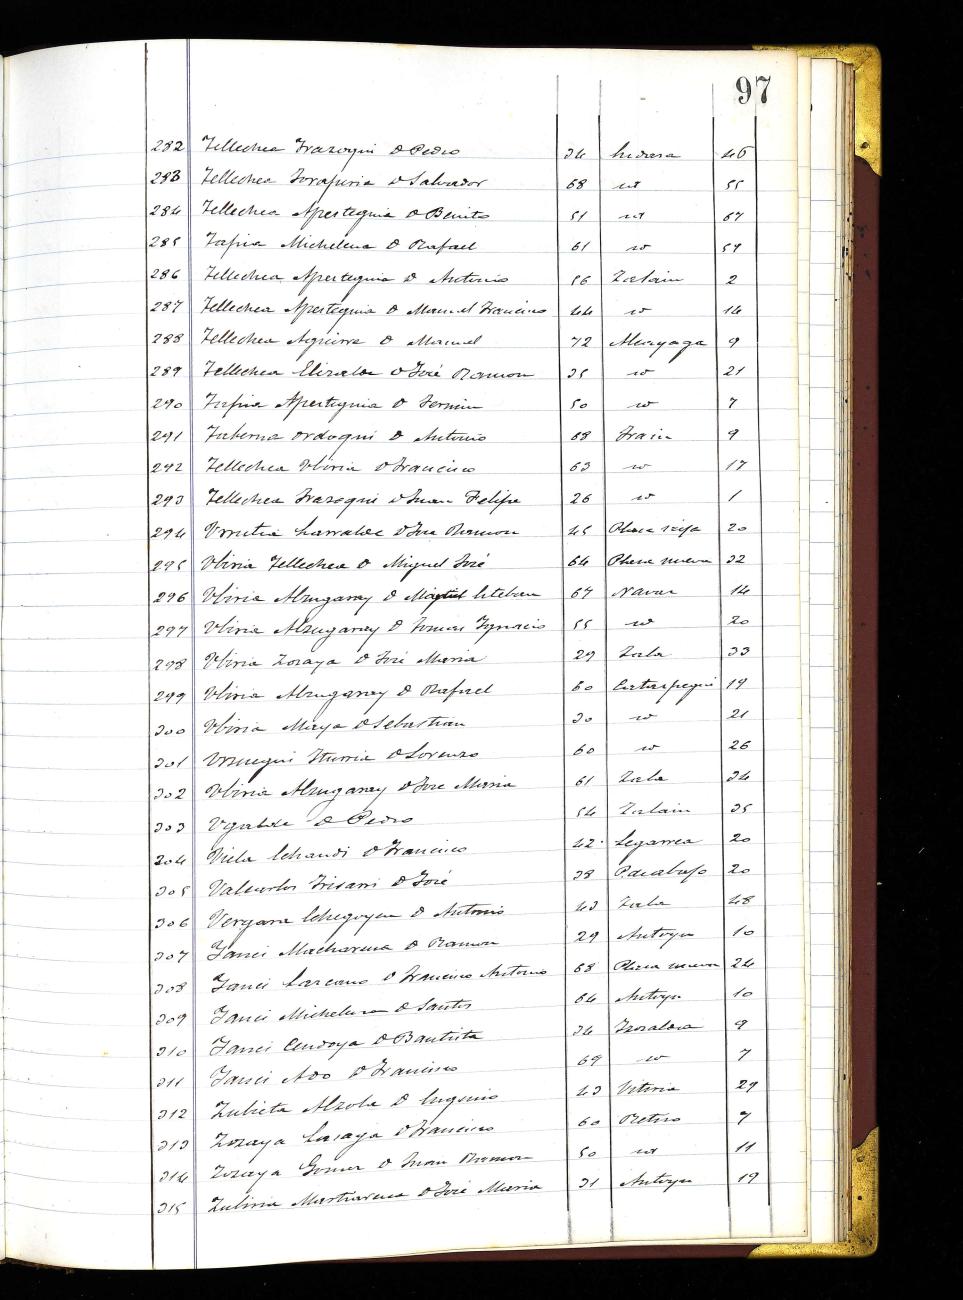 97
282 Tellechea Irazoqui D Pedro 34 46
283 Tellechea D Salvador 68 id 55
284 Tellechea Apesteguia D Benito 51 id 67
285 Tapia Michelena D Rafael 61 id 59
286 Tellechea Apesteguia D Antonio 56 Zalain 2
287 Tellechea Apesteguia D Manuel Francisco 44 id 14
288 Tellechea Aguirre D Manuel 72 Alzayaga 9
289 Tellechea Elizalde D José Ramon 35 id 21
290 Tapia Apesteguia D Fermin 50 id 7
291 Taberna Ordoqui D Antonio 68 9
292 Tellechea Ubiria D Francisco 63 id 17
293 Tellechea Irazoqui D Juan Felipe 26 id 1
294 Urrutia Larralde D José Ramon 45 Plaza vieja 20
295 Ubiria Tellechea D Miguel José 64 Plaza nueva 32
296 Ubiria Alzugaray D Esteban 67 14
297 Ubiria Alzugaray D Tomas Ygnacio 55 id 20
298 Ubiria Zozaya D José Maria 29 Zala 33
299 Ubiria Alzugaray D Rafael 60 19
300 Ubiria Maya D Sebastian 30 id 21
301 Iturria D Lorenzo 60 id 26
302 Ubiria Alzugaray D Jose Maria 61 Zala 34
303 Ugalde D Pedro 54 Zalain 35
304 Echandi D Francisco 42 Legarrea 20
305 Valcarlos Irisarri D José 38 20
306 Vergara Echegoyen D Antonio 43 Zala 48
307 Yanci Macharena D Ramon 29 10
308 Yanci Lazcano D Francisco Antonio 68 Plaza nueva 24
309 Yanci Michelena D Santos 64 10
310 Yanci Cendoya D Bautista 34 9
311 Yanci D Francisco 69 id 7
312 Zubieta Alzola D Eugenio 43 Vitoria 29
313 Zozaya D Francisco 60 7
314 Zozaya D Juan Ramon 50 id 11
315 Zubiria D José Maria 31 19